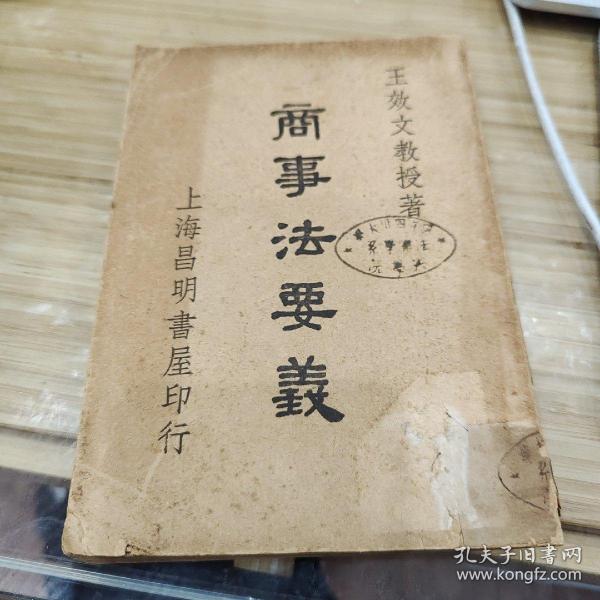 王效文教授著
商事法要義
上海昌明書屋印行
孔夫子旧书网
www.kongfz.com